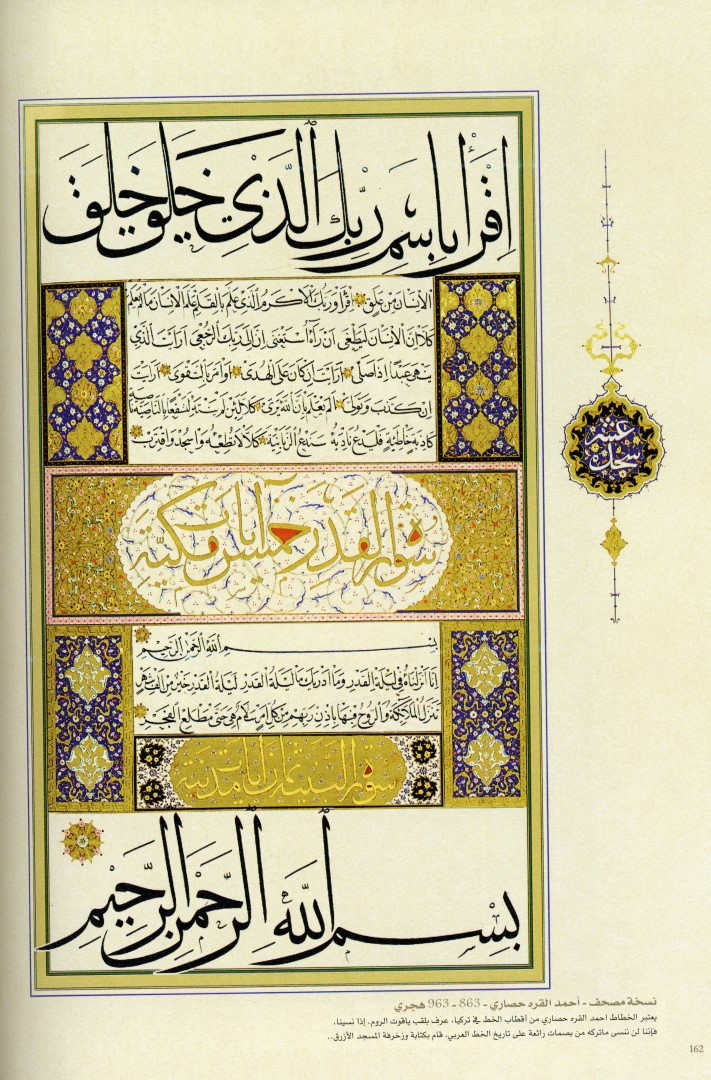 اقرأ باسم ربك الذي خلق خلق
الانسان من علق اقرأ وربك الاكرم الذي علم بالقلم علم الانسان ما لم يعلم
كلا ان الانسان ليطغى ان رآه استغنى ان الى ربك الرجعى ارأيت الذي
ينهى عبدا اذا صلى ارأيت ان كان على الهدى او امر بالتقوى ارأيت
ان كذب وتولى الم يعلم بان الله يرى كلا لئن لم ينته لنسفعا بالناصية ناصية
كاذبة خاطئة فليدع ناديه سندع الزبانية كلا لا تطعه واسجد واقترب
عشر
سجدة
سورة القدر خمس آيات مكية
بسم الله الرحمن الرحيم
انا انزلناه في ليلة القدر وما ادريك ما ليلة القدر ليلة القدر خير من الف شهر
تنزل الملائكة والروح فيها باذن ربهم من كل امر سلام هي حتى مطلع الفجر
سورة البينة ثمان آيات مدنية
بسم الله الرحمن الرحيم
نسخة مصحف - أحمد القره حصاري - 863 - 963 هجري
يعتبر الخطاط احمد القره حصاري من أقطاب الخط في تركيا، عرف بلقب ياقوت الروم. إذا نسينا،
فإننا لن ننسى ماتركه من بصمات رائعة على تاريخ الخط العربي. قام بكتابة وزخرفة المسجد الأزرق..
162